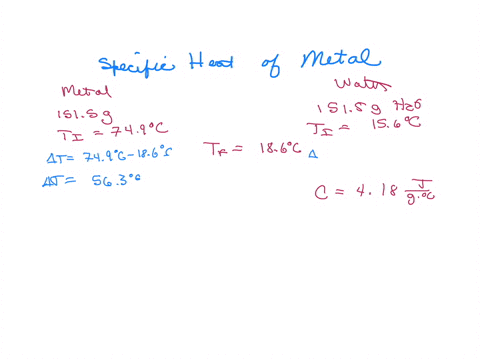 Specific Heat of Metal
Metal
151.5g
T_I = 74.9°C
ΔT = 74.9°C - 18.6°C
ΔT = 56.3°C
T_F = 18.6°C Δ
Water
151.5g H₂O
T_I = 15.6°C
C = 4.18 J/g·°C